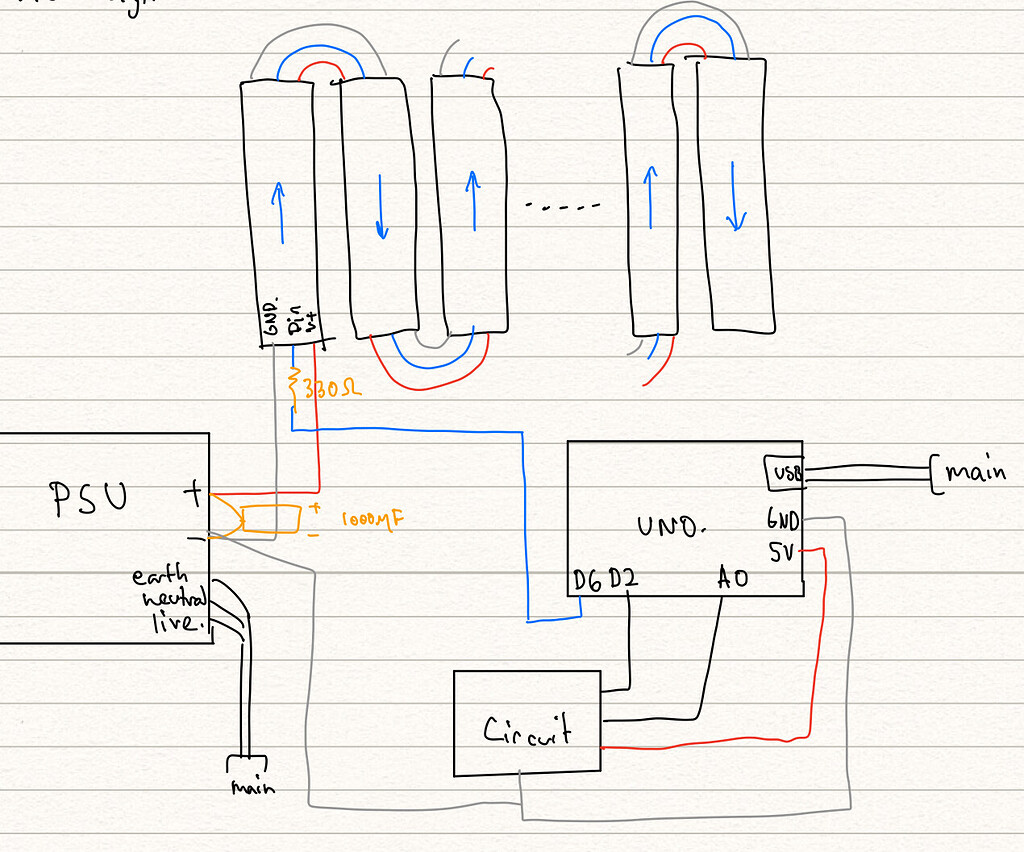 GND.
Din
V+
330Ω
PSU
+
-
+
-
1000μF
earth
neutral
live.
main
USB
main
UNO.
GND
5V
D6 D2 A0
Circuit